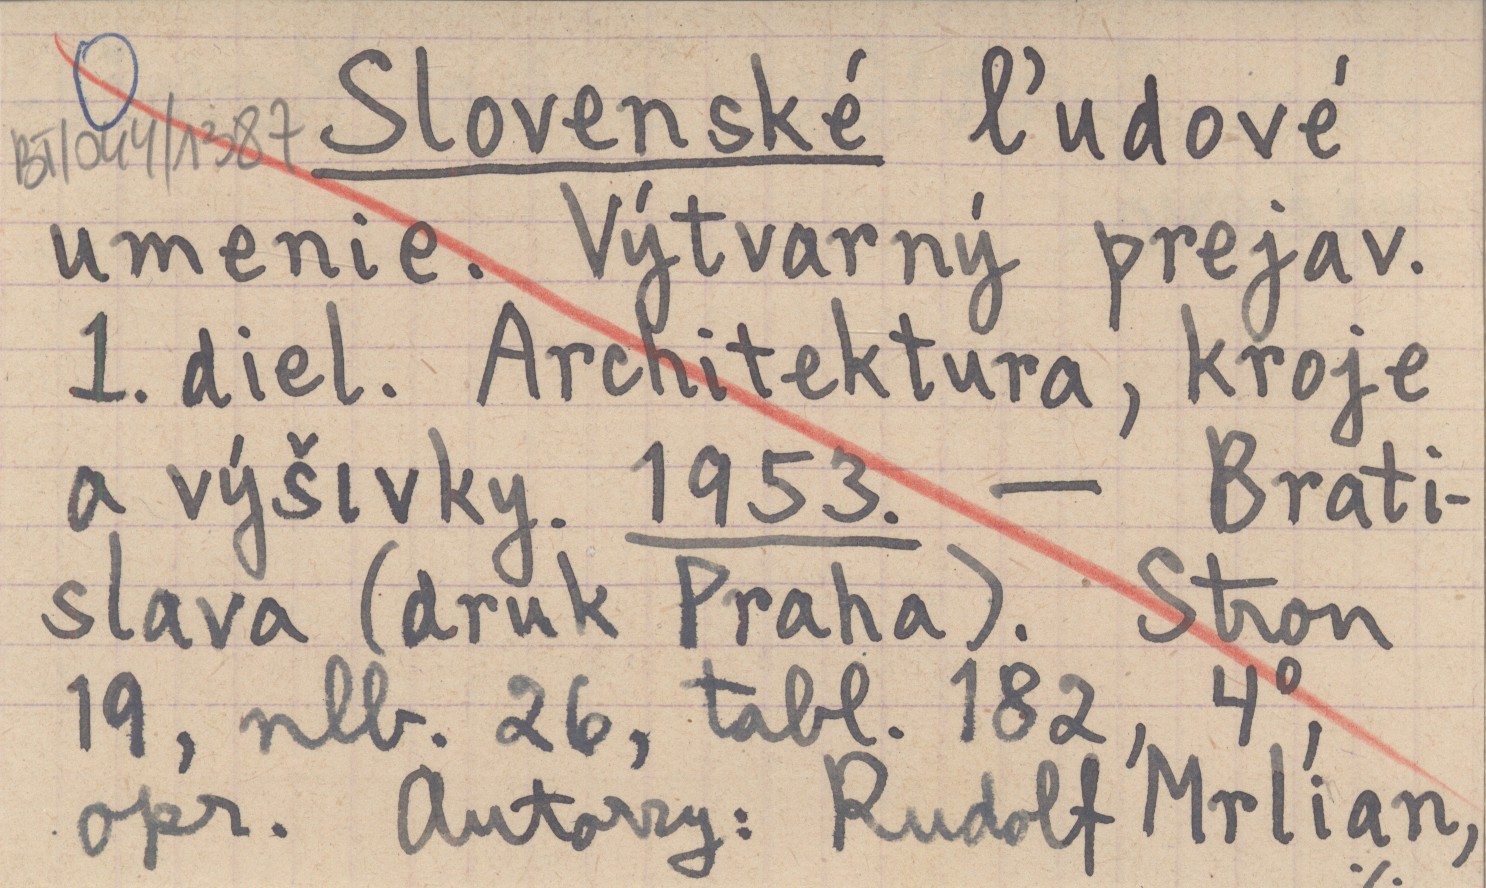 BT/044/1387
Slovenské ľudové
umenie. Výtvarný prejav.
1. diel. Architektura, kroje
a výšivky. 1953. — Brati-
slava (druk Praha). Stron
19, nlb. 26, tabl. 182, 4°,
opr. Autorzy: Rudolf Mrlían,